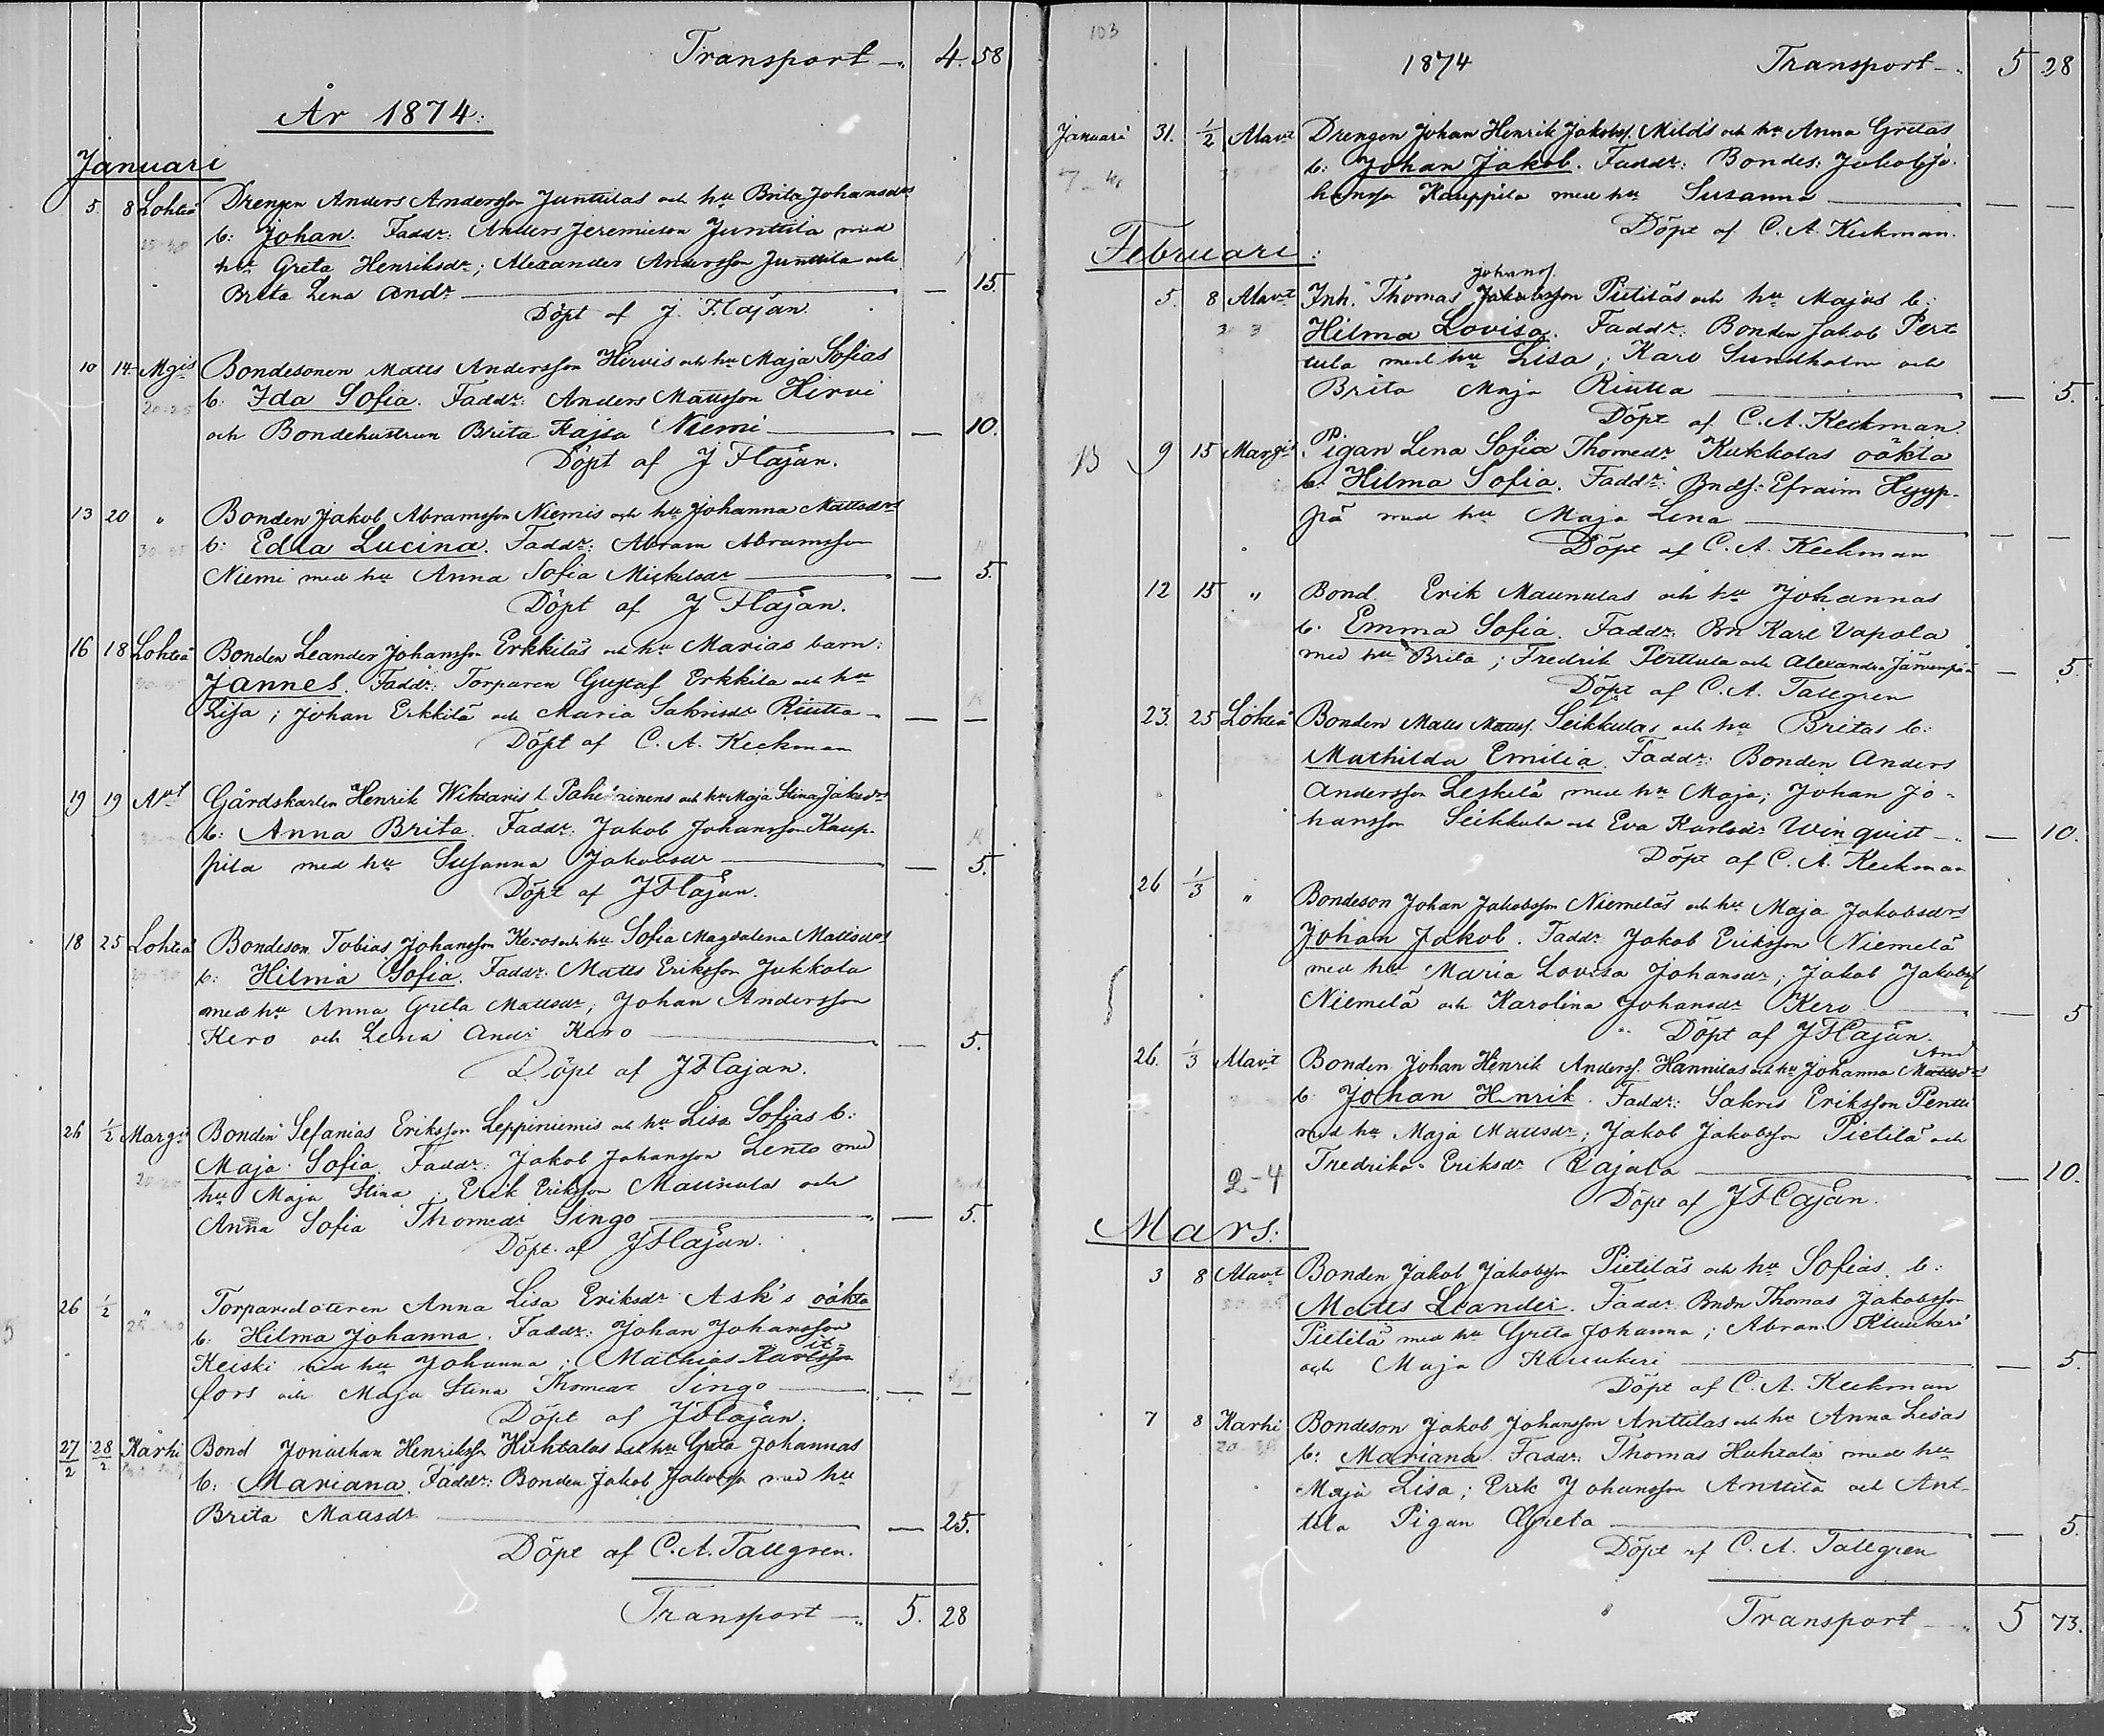 Transport 4. 58
År 1874:
Januari
5. 8 Lohteå Drengen Anders Andersson Junttilas och hu Brita Johansdrs
b: Johan. Faddr: Anders Jeremiason Junttila med
hu Greta Henriksdr; Alexander Andersson Junttila och
Brita Lena Andr — 15.
Döpt af J. Flajan.
10 14 Mgis Bondesonen Matts Andersson Hirvis och hu Maja Sofias
20-25 b. Ida Sofia. Faddr: Anders Mattsson Hirvi
och Bondehustrun Brita Kajsa Niemi — 10.
Döpt af J Flajan.
13 20 " Bonden Jakob Abramsson Niemis och hu Johanna Mattsdrs
b: Edla Lucina. Faddr: Abram Abramsson
Niemi med hu Anna Sofia Mickelsdr — 5.
Döpt af J Flajan.
16 18 Lohteå Bonden Leander Johansson Erkkiläs och hu Marias barn:
Jannes. Faddr: Torparen Gustaf Erkkilä och hu
Lisa; Johan Erkkilä och Maria Sakrisdr Riutta — —
Döpt af C. A. Keckman
19 19 Gårdskarlen Henrik och hu Maja Stina Jakobsdrs
b: Anna Brita. Faddr: Jakob Johansson Kaup-
pila med hu Susanna Jakobsdr — 5.
Döpt af J Flajan.
18 25 Lohteå Bondeson Tobias Johansson Keros och hu Sofia Magdalena Mattsdrs
b: Hilma Sofia. Faddr. Matts Eriksson Jukkola
med hu Anna Greta Mattsdr; Johan Andersson
Kero och Lena Andr Kero — 5.
Döpt af J Flajan.
26 1/2 Margis Bonden Sefanias Eriksson Leppiniemis och hu Lisa Sofias b:
Maja Sofia. Faddr: Jakob Johansson Lento med
hu Maja Stina; Erik Eriksson Maunula och
Anna Sofia Thomedr Singo — 5.
Döpt af J Flajan.
26 1/2 " Torparedotteren Anna Lisa Eriksdr Ask's oäkta
b. Hilma Johanna. Faddr: Johan Johansson
Keiski med hu Johanna; Mathias
fors och Maja Stina Thomedr Singo — —
Döpt af J Flajan.
27/2 28/2 Karhi Bond Jonathan Henriksson Huhtalas och hu Greta Johannas
b: Mariana. Faddr: Bonden Jakob Jakobsson med hu
Brita Mattsdr — 25.
Döpt af C. A. Tallgren.
Transport 5. 28
103
1874 Transport 5 28
Januari 31. 1/2 Alavt Drengen Johan Henrik Jakobss. Milds och hu Anna Gretas
b: Johan Jakob. Faddr: Bondes: Jakob Jo-
hansson Kauppila med hu Susanna — —
Döpt af C. A. Keckman.
Februari:
Johanss.
5. 8 Alavt Inh. Thomas Jakobsson Pietiläs och hu Majas b:
Hilma Lovisa. Faddr: Bonden Jakob Pert
tula med hu Lisa; Karl Sundholm och
Brita Maja Riutta — 5.
Döpt af C. A. Keckman.
9 15 Margis Pigan Lena Sofia Thomedr Kukkolas oäkta
b: Hilma Sofia. Faddr: Bnds: Efraim Hyyp-
pä med hu Maja Lena — —
Döpt af C. A. Keckman
12 15 " Bond. Erik Maunulas och hu Johannas
b. Emma Sofia. Faddr: Bn Karl Vapola
med hu Brita; Fredrik Perttula och Alexandra Järvenpä — 5.
Döpt af C. A. Tallgren
23. 25 Lohteå Bonden Matts Matts. Seikkulas och hu Britas b:
Mathilda Emilia. Faddr: Bonden Anders
Andersson Leskelä med hu Maja; Johan Jo-
hansson Seikkula och Eva Karlsdr Winquist — 10.
Döpt af C. A. Keckman
26 1/3 " Bondeson Johan Jakobsson Niemeläs och hu Maja Jakobsdrs
Johan Jakob. Faddr. Jakob Eriksson Niemelä
med hu Maria Lovisa Johansdr; Jakob Jakobss
Niemelä och Karolina Johansdr Kero — 5
Döpt af J Flajan.
And
26. 1/3 Alavt Bonden Johan Henrik Anderss. Hannilas och hu Johanna Mattsdrs
b. Johan Henrik. Faddr: Sakris Eriksson Pentti
med hu Maja Mattsdr; Jakob Jakobsson Pietilä och
2-4 Fredrika Eriksdr Rajala — 10.
Döpt af J Flajan.
Mars:
3 8 Alavt Bonden Jakob Jakobsson Pietiläs och hu Sofias b:
Matts Leander. Faddr. Bndn Thomas Jakobsson
Pietilä med hu Greta Johanna; Abram
och Maja — 5.
Döpt af C. A. Keckman
7 8 Karhi Bondeson Jakob Johansson Anttilas och hu Anna Lisas
b: Mariana. Faddr: Thomas Huhtala med hu
Maja Lisa; Erik Johansson Anttila och Ant-
tila Pigan Greta — 5.
Döpt af C. A. Tallgren
Transport 5 73.